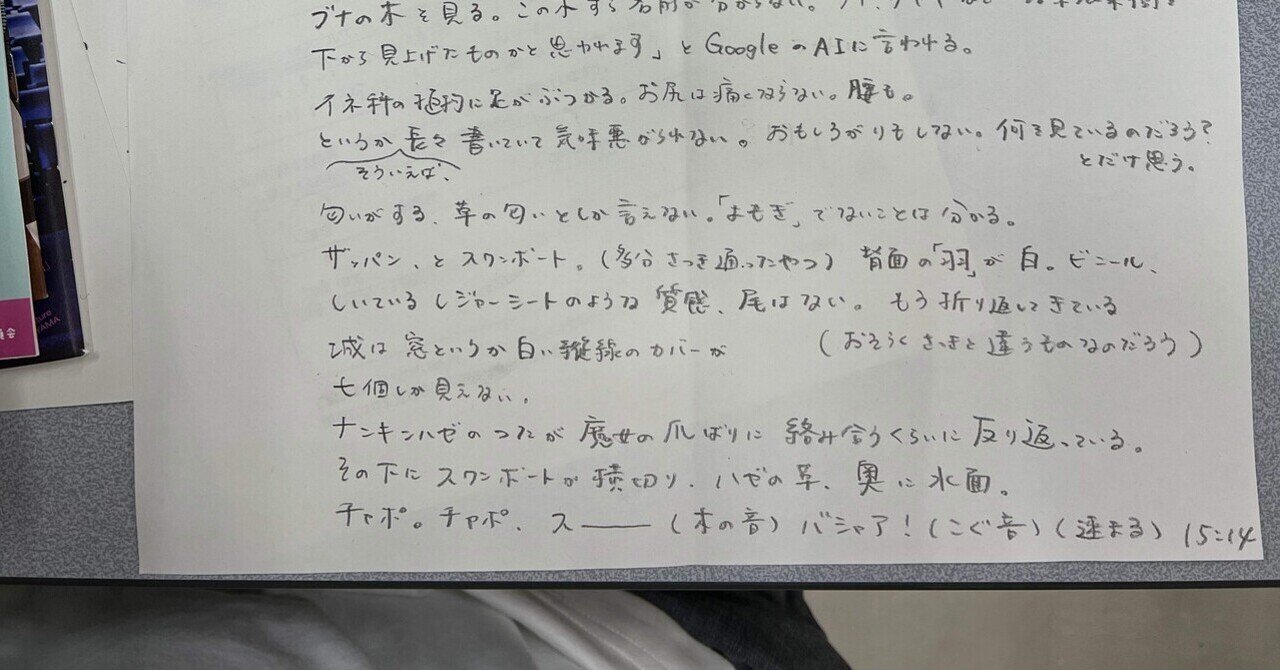 ブナの木を見る。この木すら名前が分からない。
下から見上げたものかと思われます」とGoogleのAIに言われる。
イネ科の植物に足がぶつかる。お尻は痛くならない。腰も。
というか長々書いていて気味悪がられない。おもしろがりもしない。何を見ているのだろう?
とだけ思う。
そういえば、
匂いがする、草の匂いとしか言えない。「よもぎ」でないことは分かる。
ザッパン、とスワンボート。(多分さっき通ったやつ) 背面の「羽」が白。ビニール、
しいているレジャーシートのような質感、尾はない。もう折り返してきている
(おそらくさっきと違うものなのだろう)
城は窓というか白い縦線のカバーが
七個しか見えない。
ナンキンハゼのつたが魔女の爪ばりに絡み合うくらいに反り返っている。
その下にスワンボートが横切り、ハゼの草、奥に水面。
チャポ。チャポ、スー――(水の音) バシャア!(こぐ音)(速まる) 15:14